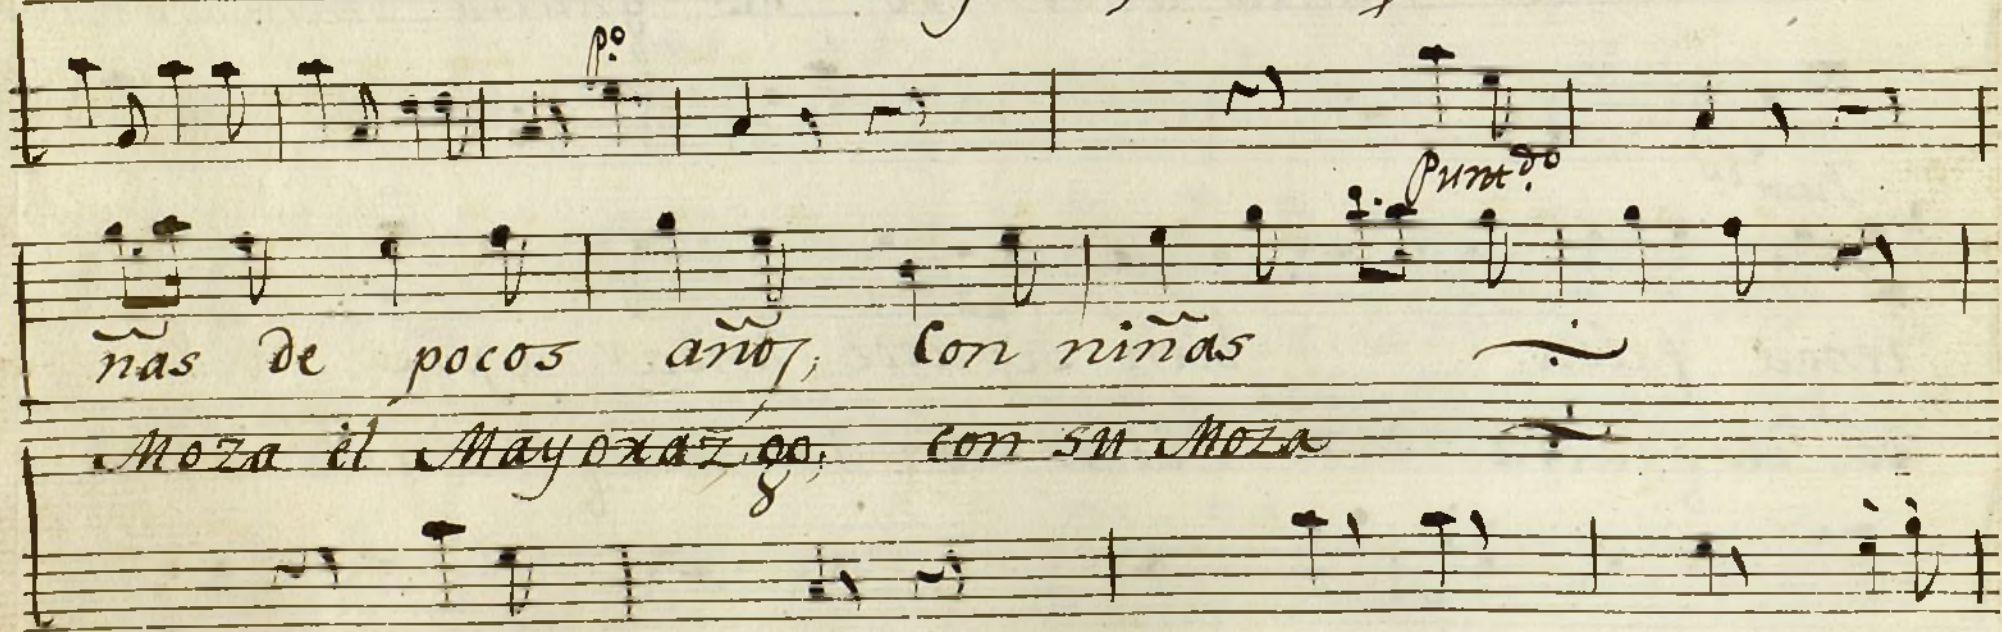 p.º
Punt.do
ñas de pocos años, Con niñas
Moza el Mayorazgo, con su Moza